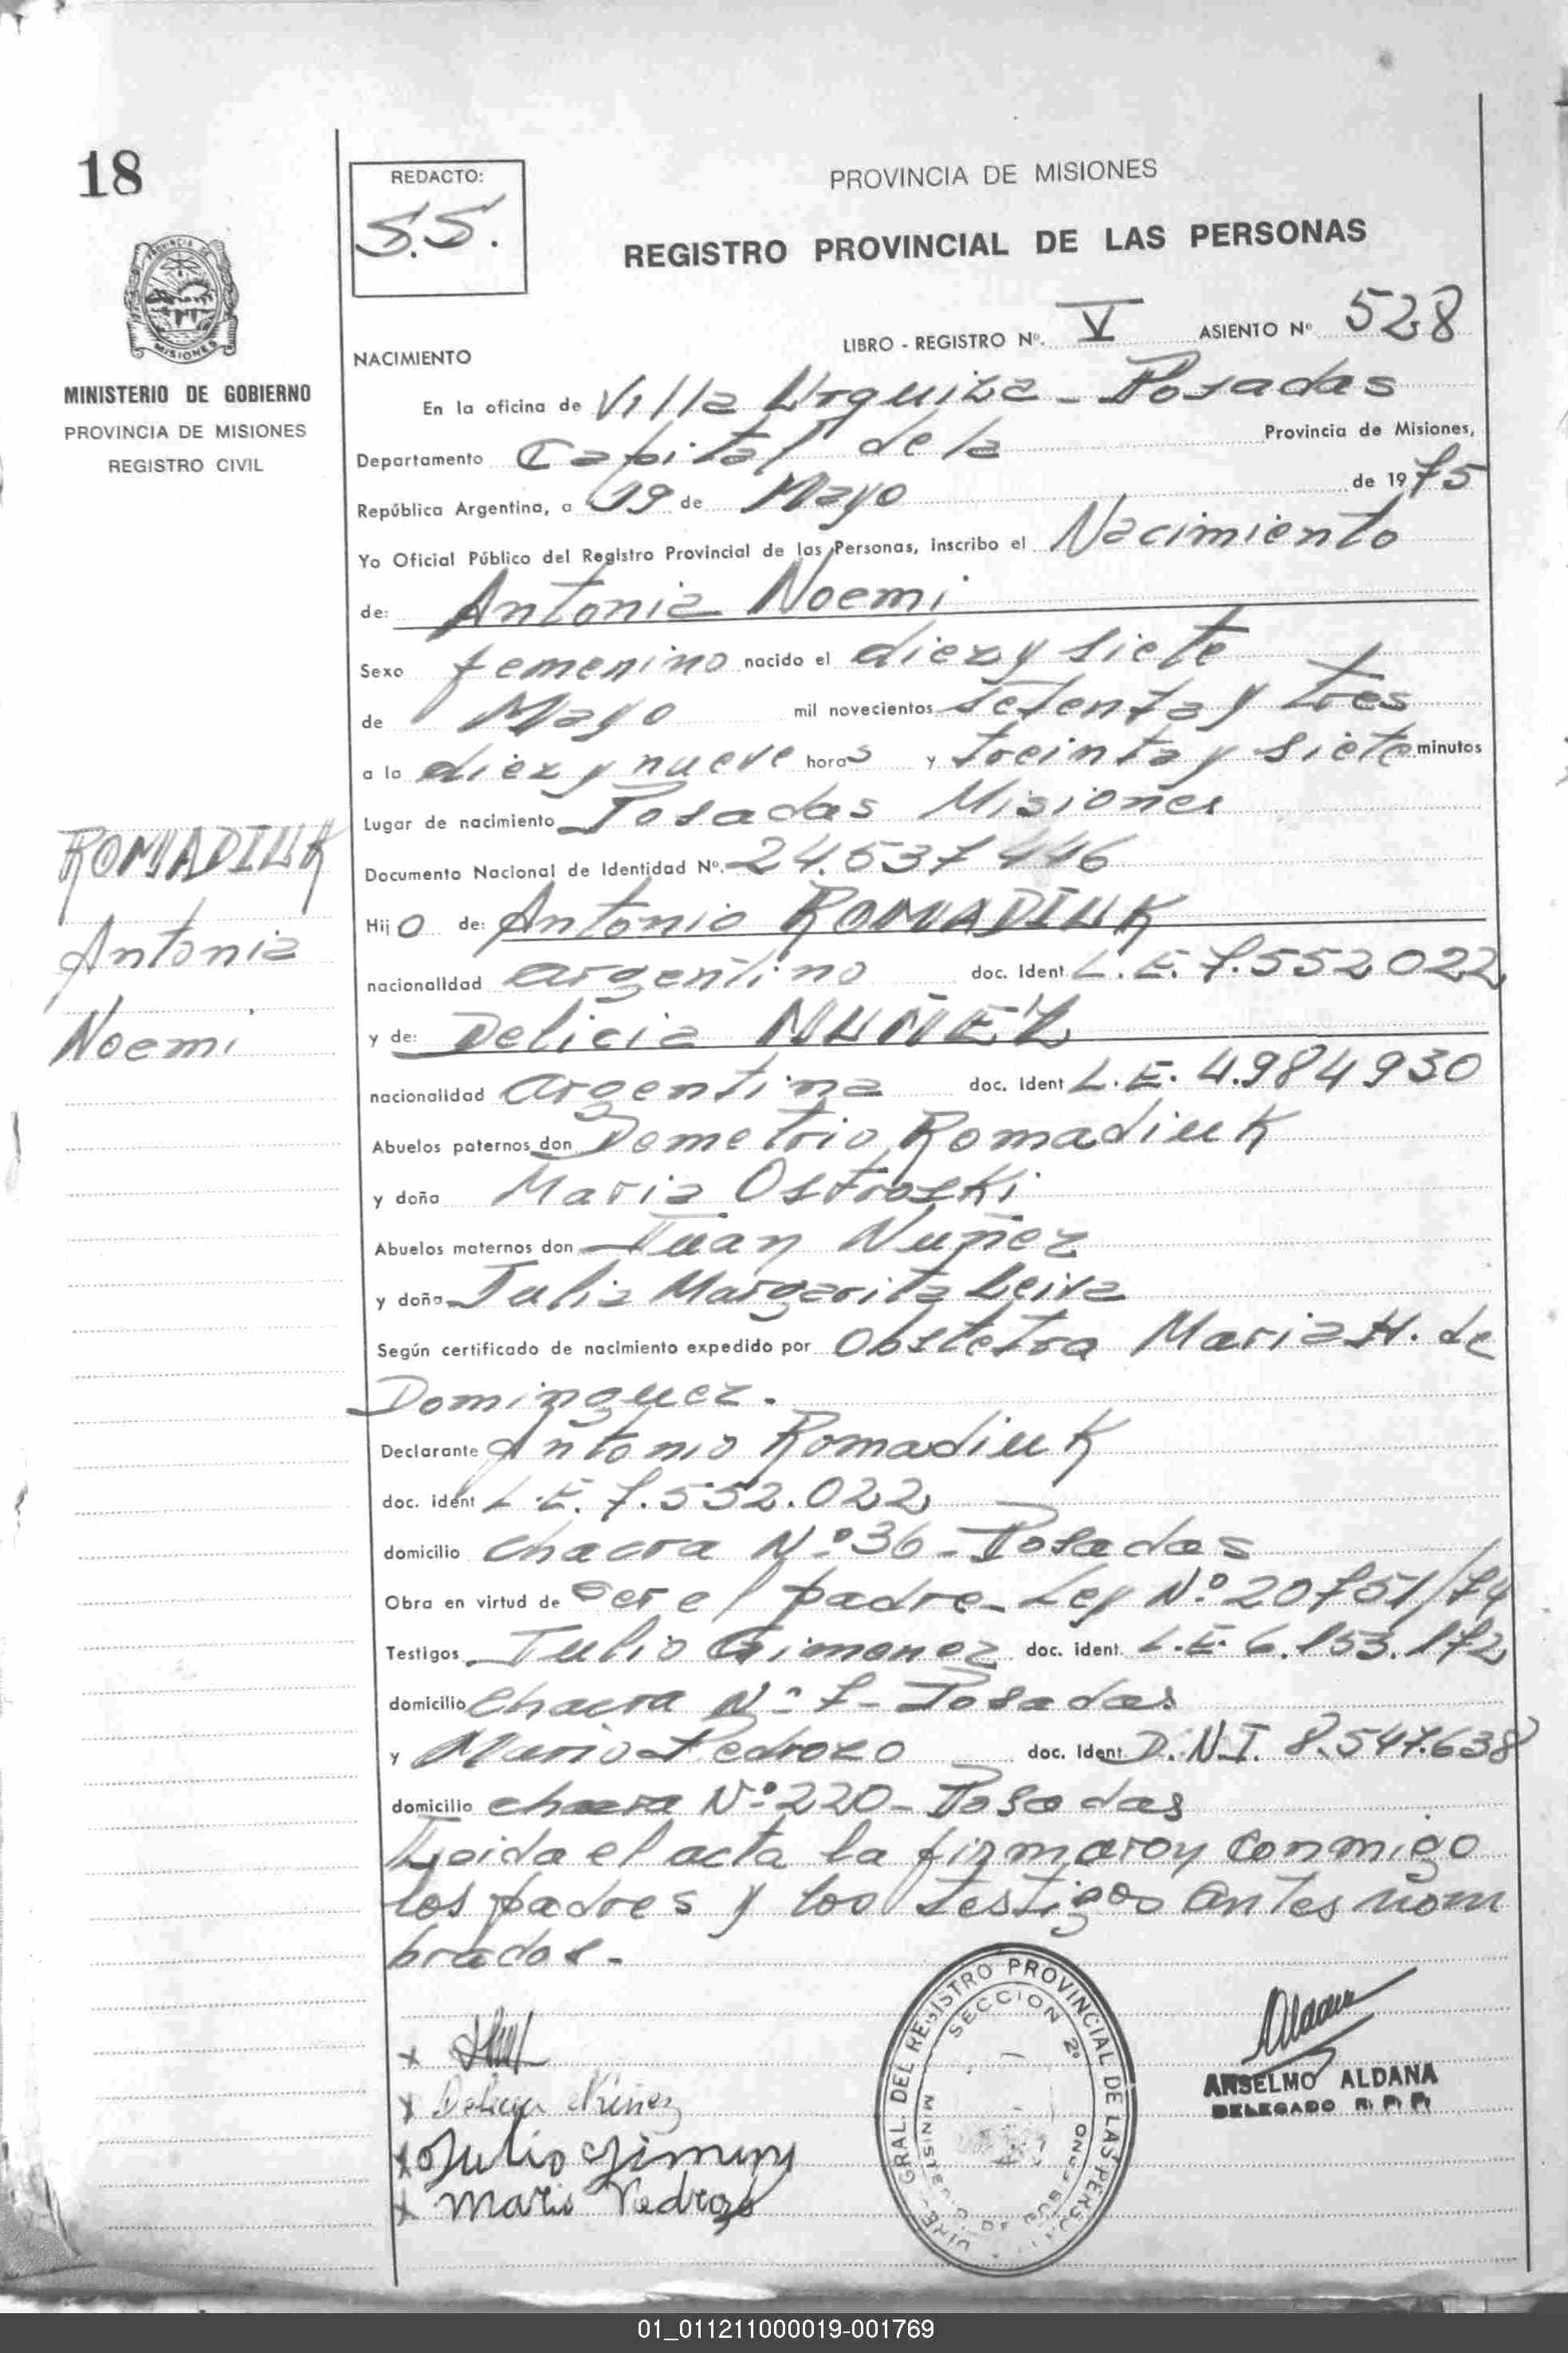 18
REDACTO:
S.S.
PROVINCIA DE MISIONES
REGISTRO PROVINCIAL DE LAS PERSONAS
MISIONES
MINISTERIO DE GOBIERNO
PROVINCIA DE MISIONES
REGISTRO CIVIL
LIBRO - REGISTRO Nº. V ASIENTO Nº 528
NACIMIENTO
En la oficina de Villa Urquiza - Posadas
Departamento Capital de la Provincia de Misiones,
República Argentina, a 19 de Mayo de 1975
Yo Oficial Público del Registro Provincial de las Personas, inscribo el Nacimiento
de: Antonia Noemi
Sexo femenino nacido el diez y siete
de Mayo mil novecientos setenta y tres
a la diez y nueve horas y treinta y siete minutos
Lugar de nacimiento Posadas Misiones
Documento Nacional de Identidad Nº. 24.537446
Hijo de: Antonio ROMADIUK
nacionalidad argentino doc. ident L.E. 7.552022
y de: Delicia NUÑEZ
nacionalidad argentina doc. ident L.E. 4.984930
Abuelos paternos don Demetrio Romadiuk
y doña Maria Ostroski
Abuelos maternos don Juan Nuñez
y doña Julia Margarita Leiva
Según certificado de nacimiento expedido por Obstetra Maria H. de
Dominguez.
Declarante Antonio Romadiuk
doc. ident L.E. 7.552.022
domicilio chacra Nº 36 - Posadas
Obra en virtud de ser el padre - Ley Nº 20751/74
Testigos Julio Gimenez doc. ident. L.E. 6.153.172
domicilio Chacra Nº 7 - Posadas
y Mario Pedrozo doc. Ident D.N.I. 8.547.638
domicilio chacra Nº 220 - Posadas
Leida el acta la firmaron conmigo
los padres y los testigos antes nom
brados.-
ROMADIUK
Antonia
Noemi
x
x Delicia Nuñez
x Julio Gimenez
x Mario Pedrozo
GRAL DEL REGISTRO PROVINCIAL DE LAS PERSONAS
SECCION 2º
MINISTERIO DE GOBIERNO
Aldana
ANSELMO ALDANA
DELEGADO R. P. P.
01_011211000019-001769